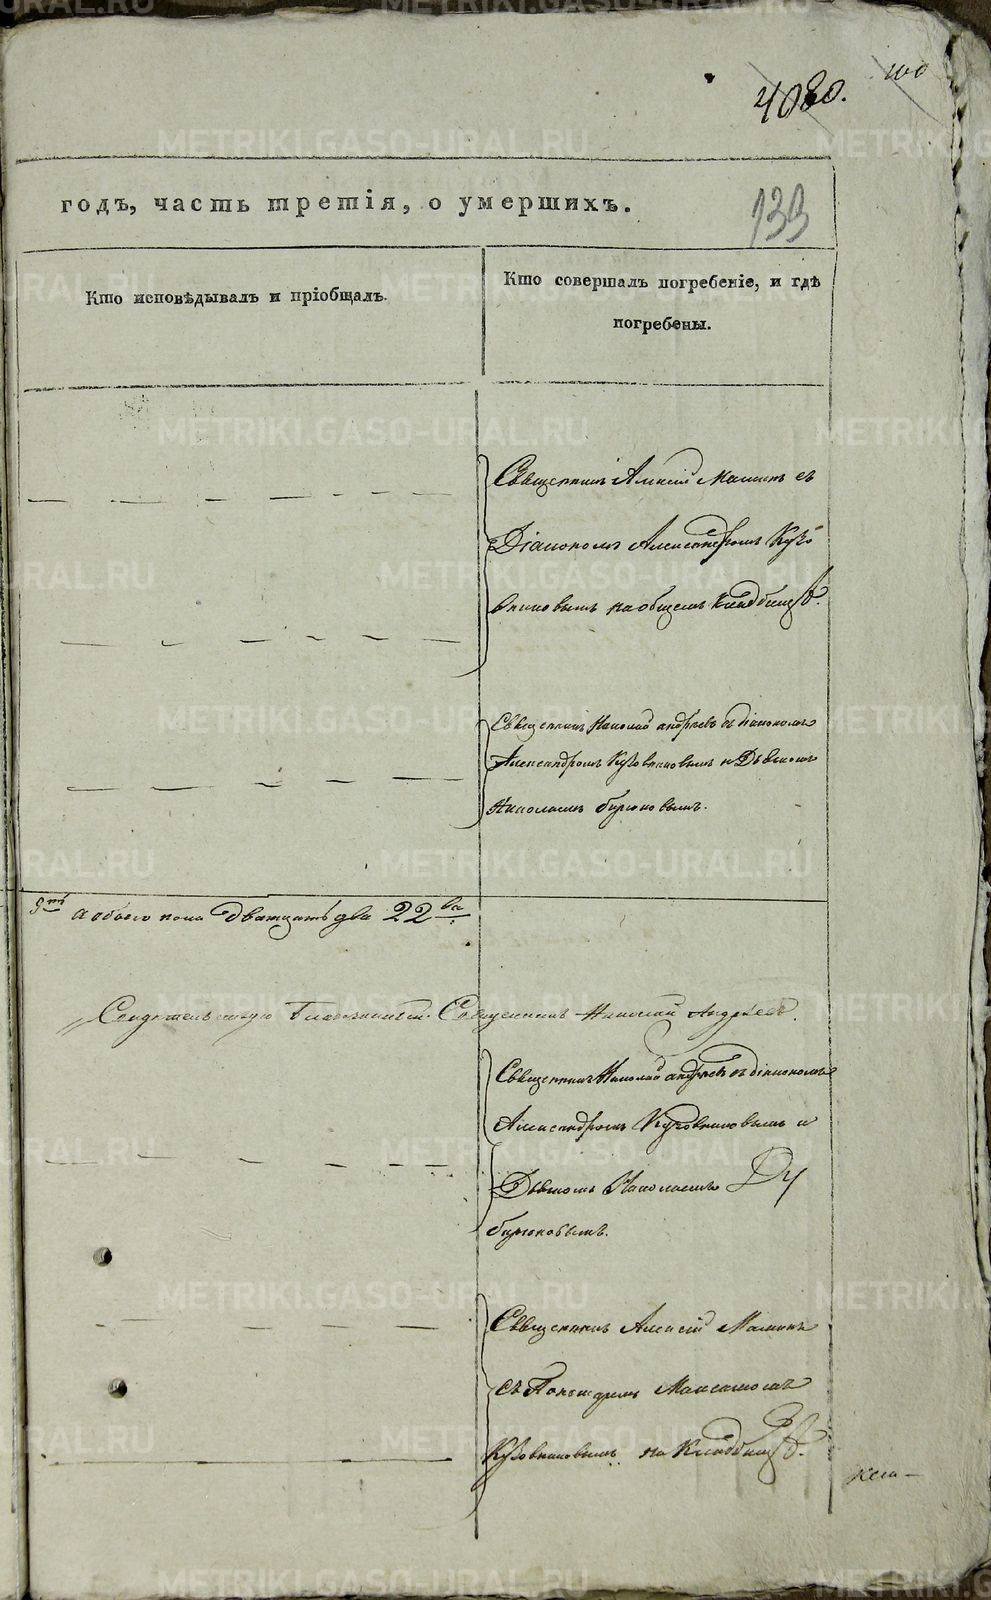 4080.
100
годъ, часть третія, о умершихъ.
133
Кто исповѣдывалъ и пріобщалъ.
Кто совершалъ погребеніе, и гдѣ
погребены.
Священникъ Алексій Маминъ съ
Діакономъ Александромъ Кузо
вниковымъ на общемъ кладбищѣ.
Священникъ Николай андреевъ съ діакономъ
Александромъ Кузовниковымъ и Дьячкомъ
Николаемъ бирюковымъ.
9ть а обоего пола дватцать два 22ва.
Свидетельствую Благочинный Священникъ Николай Андреевъ.
Священникъ Николай андреевъ съ діакономъ
Александромъ Кузовниковымъ и
Дьячкомъ Николаемъ
бирюковымъ.
Священникъ Алексій Маминъ
съ Понамаремъ Максимомъ
Кузовниковымъ на Кладбищѣ.
METRIKI.GASO-URAL.RU